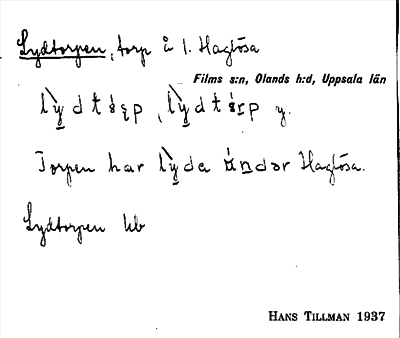 Lydtorpen, torp å 1. Haglösa
Films s:n, Olands h:d, Uppsala län
y.
Torpen har lỳda úndər Haglösa.
Lydtorpen kb
HANS TILLMAN 1937